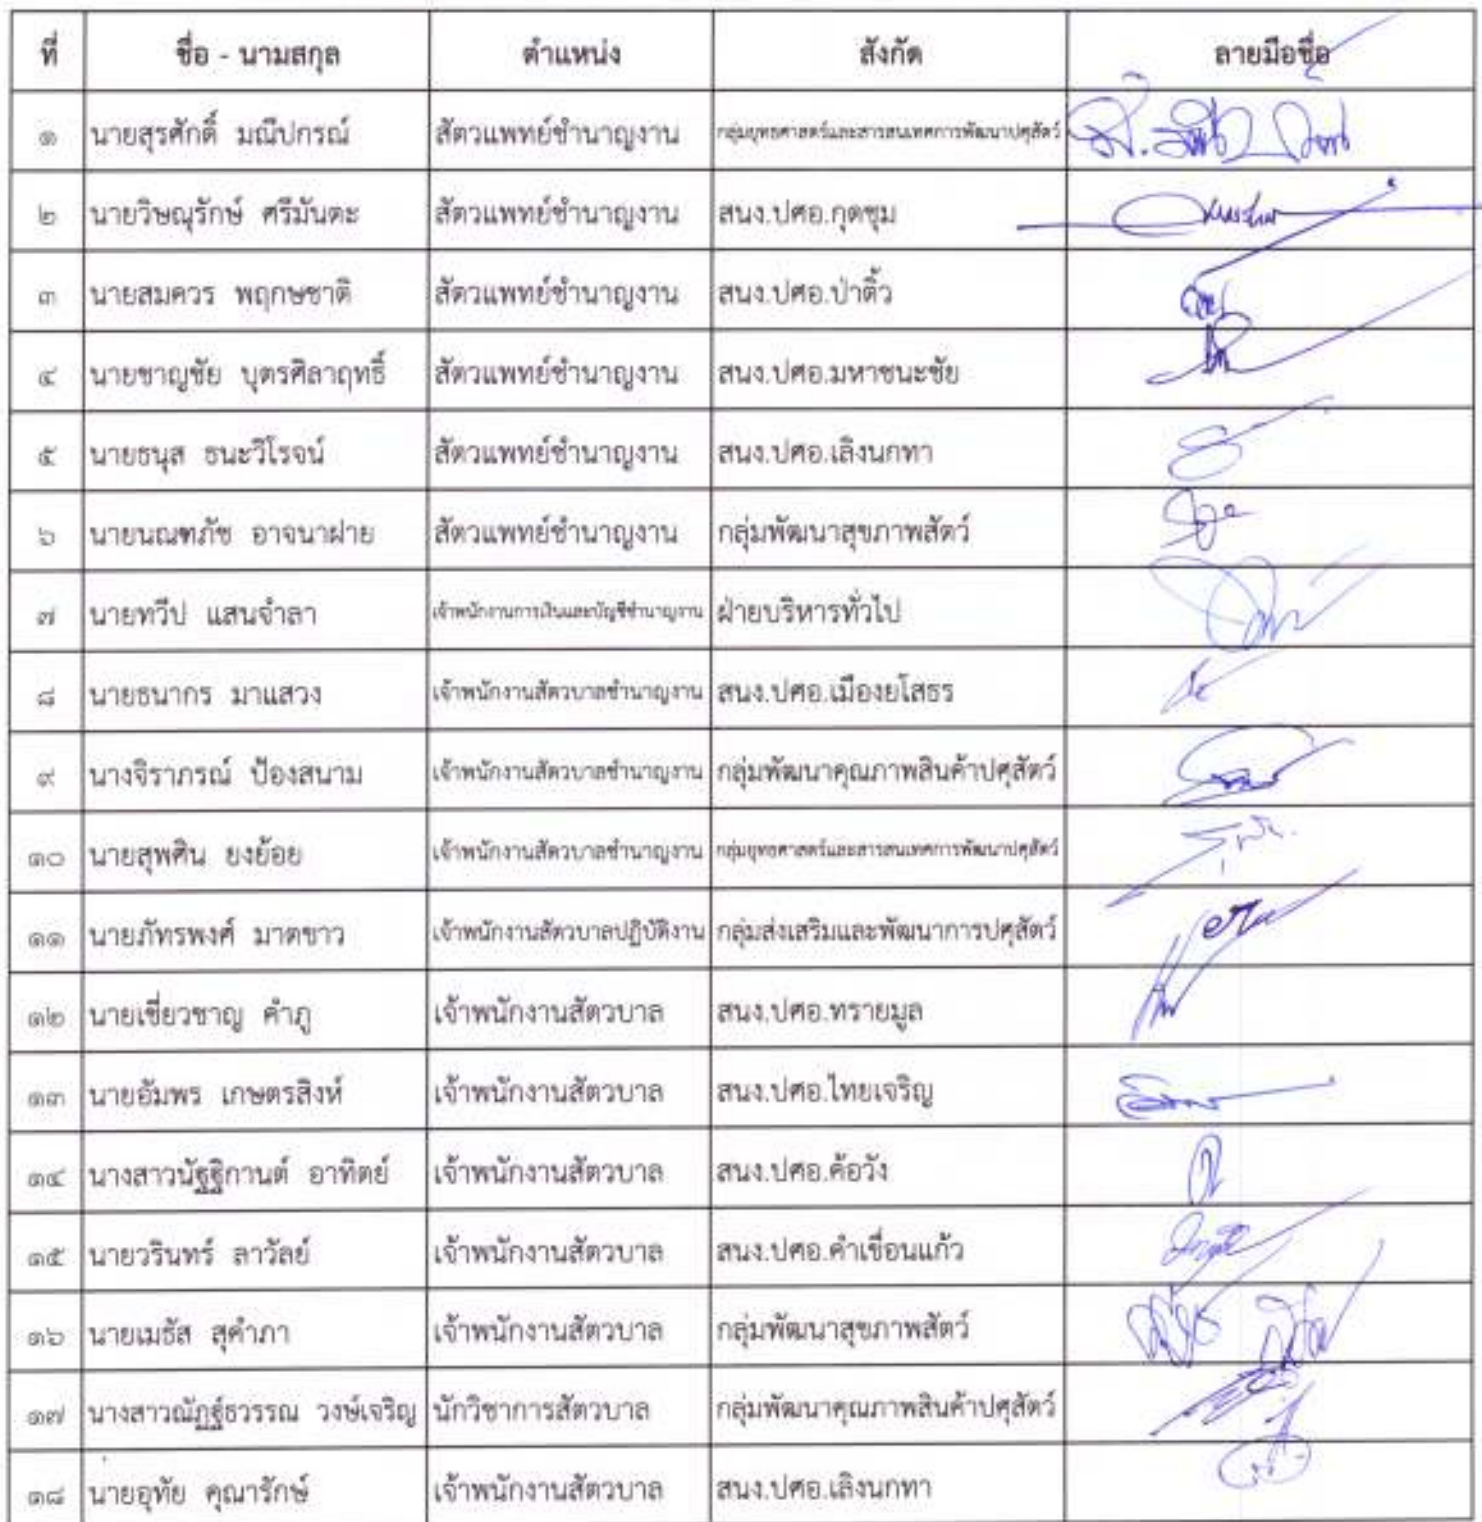 ที่ ชื่อ - นามสกุล ตำแหน่ง สังกัด ลายมือชื่อ
๑ นายสุรศักดิ์ มณีปกรณ์ สัตวแพทย์ชำนาญงาน กลุ่มยุทธศาสตร์และสารสนเทศการพัฒนาปศุสัตว์
๒ นายวิษณุรักษ์ ศรีมันตะ สัตวแพทย์ชำนาญงาน สนง.ปศอ.กุดชุม
๓ นายสมควร พฤกษชาติ สัตวแพทย์ชำนาญงาน สนง.ปศอ.ป่าติ้ว
๔ นายชาญชัย บุตรศิลาฤทธิ์ สัตวแพทย์ชำนาญงาน สนง.ปศอ.มหาชนะชัย
๕ นายธนุส ธนะวิโรจน์ สัตวแพทย์ชำนาญงาน สนง.ปศอ.เลิงนกทา
๖ นายนณฑภัช อาจนาฝาย สัตวแพทย์ชำนาญงาน กลุ่มพัฒนาสุขภาพสัตว์
๗ นายทวีป แสนจำลา เจ้าพนักงานการเงินและบัญชีชำนาญงาน ฝ่ายบริหารทั่วไป
๘ นายธนากร มาแสวง เจ้าพนักงานสัตวบาลชำนาญงาน สนง.ปศอ.เมืองยโสธร
๙ นางจิราภรณ์ ป้องสนาม เจ้าพนักงานสัตวบาลชำนาญงาน กลุ่มพัฒนาคุณภาพสินค้าปศุสัตว์
๑๐ นายสุพศิน ยงย้อย เจ้าพนักงานสัตวบาลชำนาญงาน กลุ่มยุทธศาสตร์และสารสนเทศการพัฒนาปศุสัตว์
๑๑ นายภัทรพงศ์ มาตขาว เจ้าพนักงานสัตวบาลปฏิบัติงาน กลุ่มส่งเสริมและพัฒนาการปศุสัตว์
๑๒ นายเชี่ยวชาญ คำภู เจ้าพนักงานสัตวบาล สนง.ปศอ.ทรายมูล
๑๓ นายอัมพร เกษตรสิงห์ เจ้าพนักงานสัตวบาล สนง.ปศอ.ไทยเจริญ
๑๔ นางสาวนัฐฐิกานต์ อาทิตย์ เจ้าพนักงานสัตวบาล สนง.ปศอ.ค้อวัง
๑๕ นายวรินทร์ ลาวัลย์ เจ้าพนักงานสัตวบาล สนง.ปศอ.คำเขื่อนแก้ว
๑๖ นายเมธัส สุคำภา เจ้าพนักงานสัตวบาล กลุ่มพัฒนาสุขภาพสัตว์
๑๗ นางสาวณัฏฐ์ธวรรณ วงษ์เจริญ นักวิชาการสัตวบาล กลุ่มพัฒนาคุณภาพสินค้าปศุสัตว์
๑๘ นายอุทัย คุณารักษ์ เจ้าพนักงานสัตวบาล สนง.ปศอ.เลิงนกทา